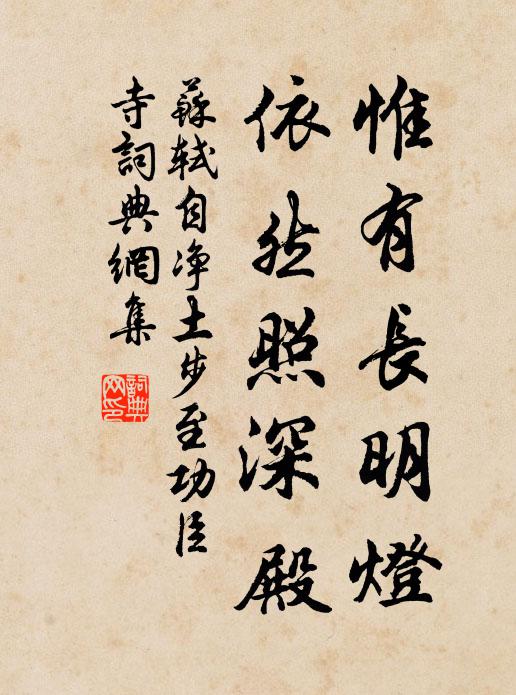 惟有長明燈
依然照深殿
蘇軾自净土步至功臣
寺詞典網集
詞典
网印